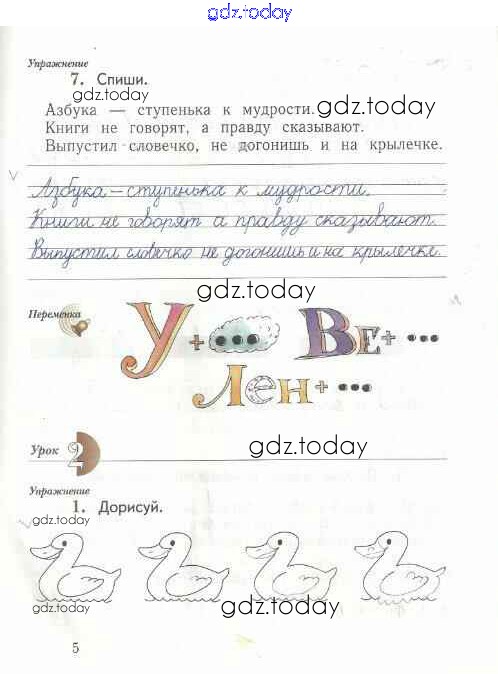 gdz.today
Упражнение
7. Спиши.
gdz.today
Азбука — ступенька к мудрости.
gdz.today
Книги не говорят, а правду сказывают.
Выпустил словечко, не догонишь и на крылечке.
Азбука – ступинька к мудрости.
Книги не говорят а правду сказывают.
Выпустил словечко не догонишь и на крылечке.
gdz.today
Переменка
У + ••• Ве + •••
Лен + •••
Урок 2
gdz.today
Упражнение
1. Дорисуй.
gdz.today
gdz.today
gdz.today
5